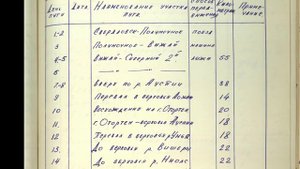 Дни пути Дата Наименование участка пути. Способ передвижения Километраж Примечание
1-2 Свердловск-Полуночное поезд
3 Полуночное - Вижай машина
4-5 Вижай - 2й Северный лыжи 55
6 — " — " —
7-8 Вверх по р. Ауспии 38
9 Перевал в верховья Лозьвы 14
10 Восхождение на г. Отортен 20
11 г. Отортен - верховья Ауспии 18
12 Перевал в верховья р. Унья 18
13 До верховья р. Вишера 22
14 До верховья р. Ниолс 22